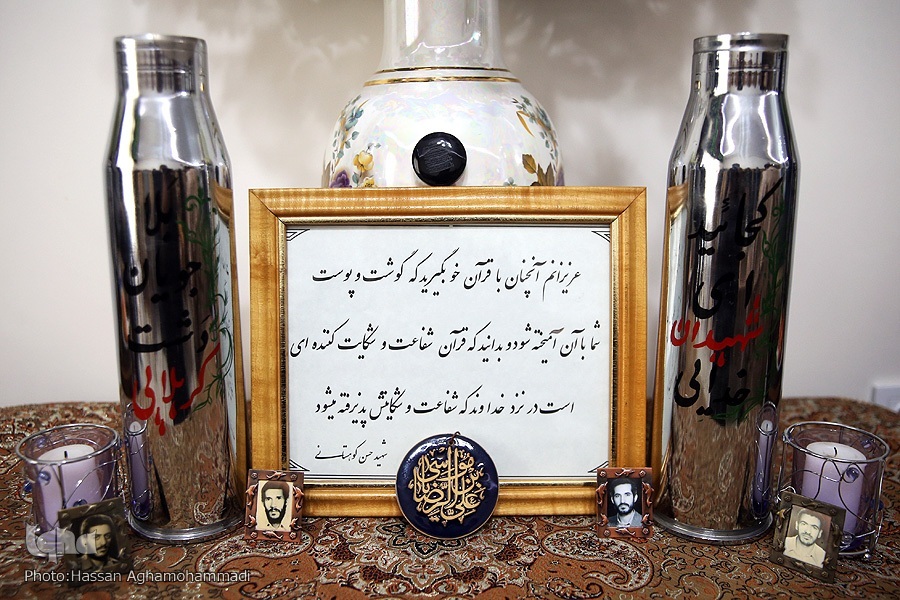 بلا
جویان
دشت
کربلایی
عزیزانم آنچنان با قرآن خو بگیرید که گوشت و پوست
شما با آن آمیخته شود و بدانید که قرآن شفاعت و شکایت کننده ای
است در نزد خداوند که شفاعت و شکایتش پذیرفته میشود
شهید حسن کوهستانی
کجائید
ای
شهیدان
خدایی
علی بن موسی الرضا
iqna
Photo:Hassan Aghamohammadi